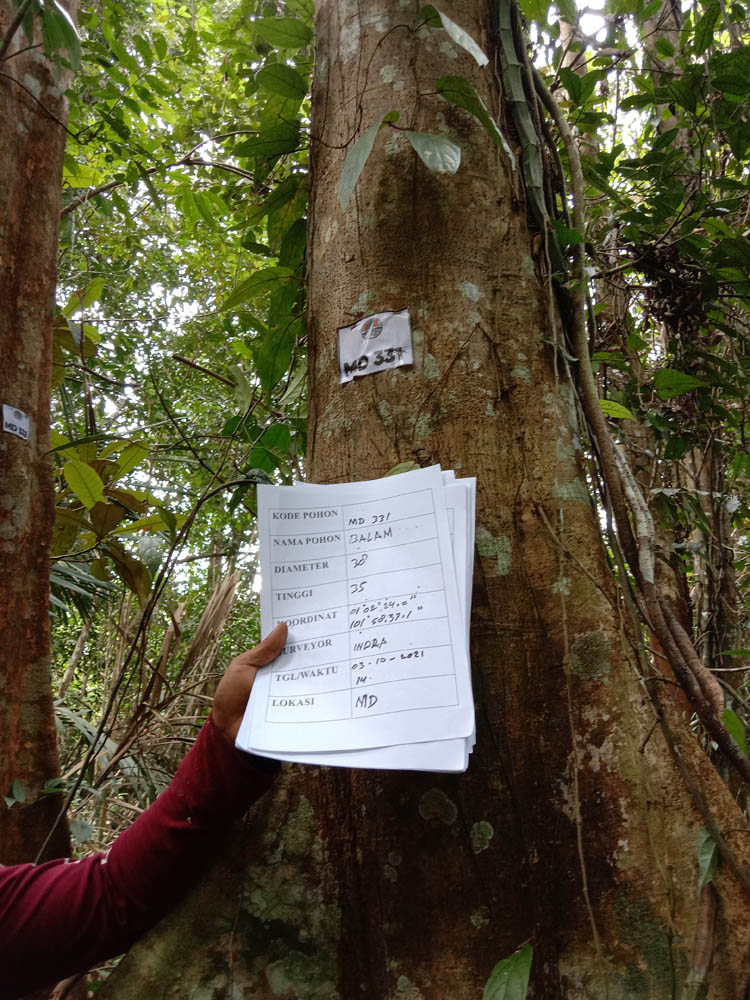 MD 331
KODE POHON MD 331
NAMA POHON BALAM
DIAMETER 38
TINGGI 35
KOORDINAT 01°02'24.0"
101°58.37.1"
SURVEYOR INDRA
TGL/WAKTU 03-10-2021
14.
LOKASI MD